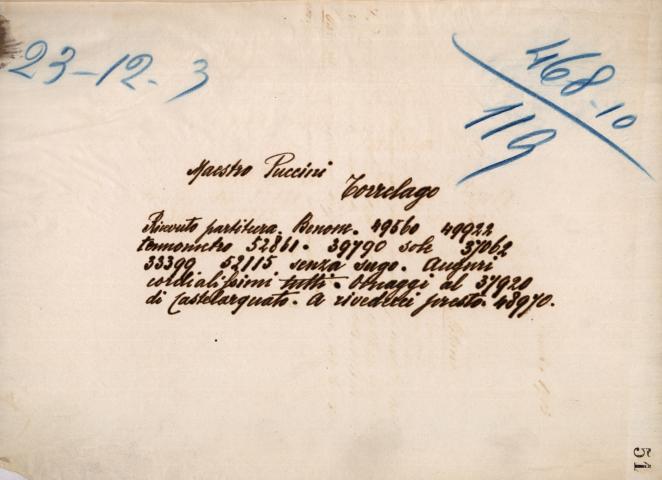 23-12-3
468-10
119
Maestro Puccini
Torrelago
Ricevuto partitura. Benone. 49560 49922
termometro 52861. 39790 sole 37062
33399 52115 senza sugo. Auguri
cordialissimi tutti. Omaggi al 37920
di Castelarquato. A rivederci presto. 48970.
51